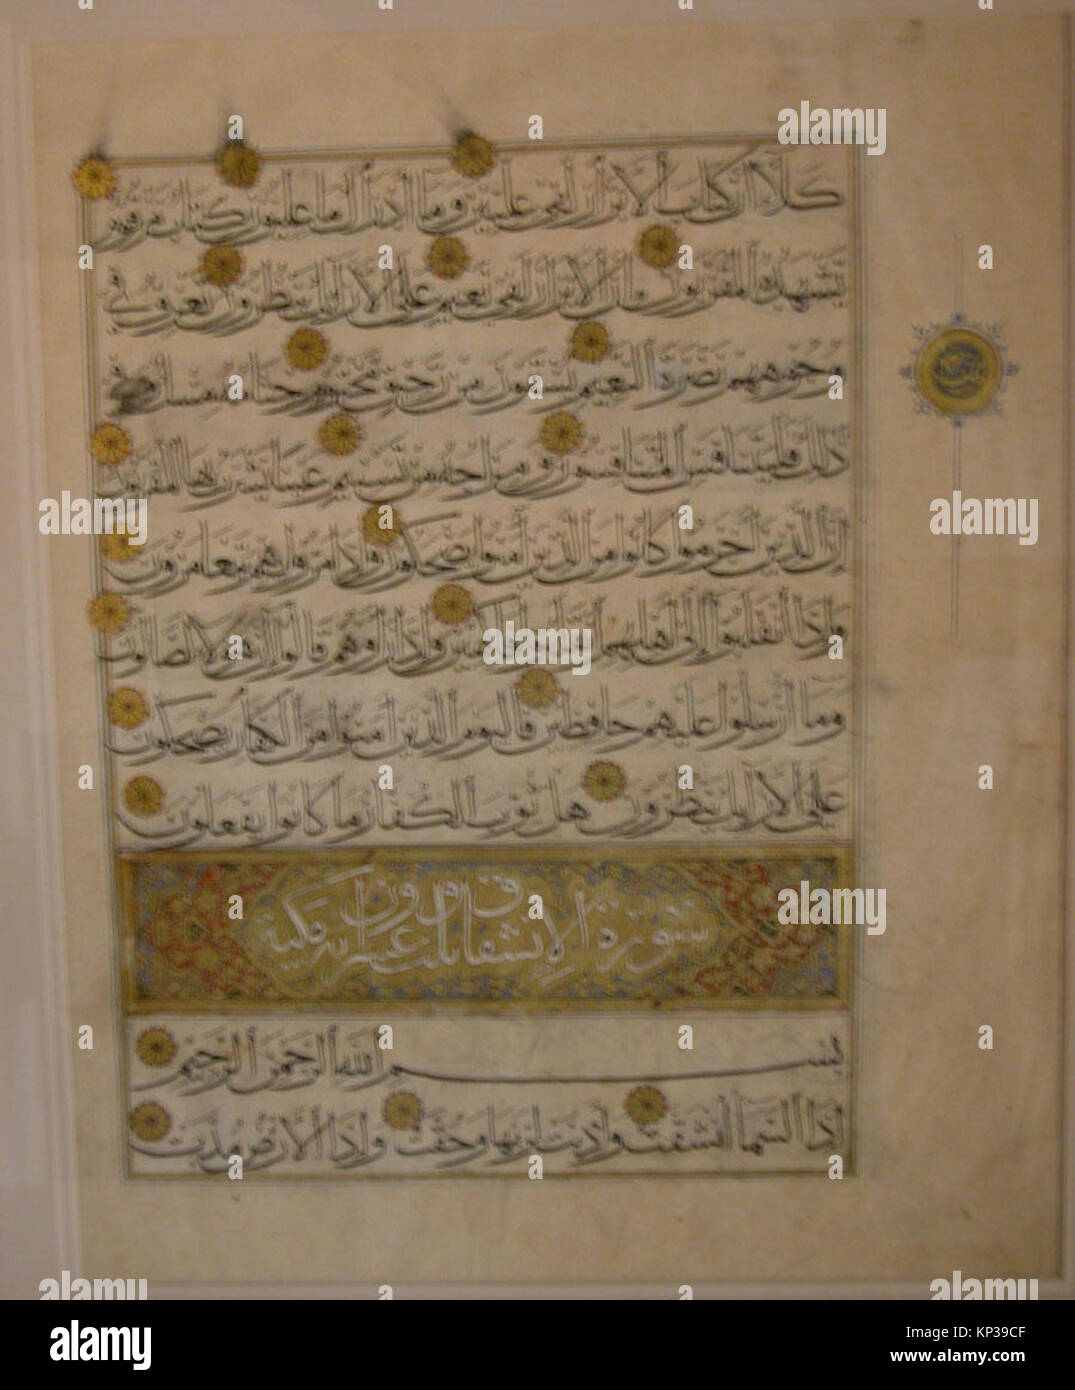 كلا إن كتاب الأبرار لفي عليين وما أدراك ما عليون كتاب مرقوم
يشهده المقربون إن الأبرار لفي نعيم على الأرائك ينظرون تعرف في
وجوههم نضرة النعيم يسقون من رحيق مختوم ختامه مسك وفي
ذلك فليتنافس المتنافسون ومزاجه من تسنيم عينا يشرب بها المقربون
إن الذين أجرموا كانوا من الذين آمنوا يضحكون وإذا مروا بهم يتغامزون
وإذا انقلبوا إلى أهلهم انقلبوا فاكهين وإذا رأوهم قالوا إن هؤلاء لضالون
وما أرسلوا عليهم حافظين فاليوم الذين آمنوا من الكفار يضحكون
على الأرائك ينظرون هل ثوب الكفار ما كانوا يفعلون
سورة الانشقاق عشرون مكية
بسم الله الرحمن الرحيم
إذا السماء انشقت وأذنت لربها وحقت وإذا الأرض مدت
alamy
alamy stock photo
KP39CF
www.alamy.com